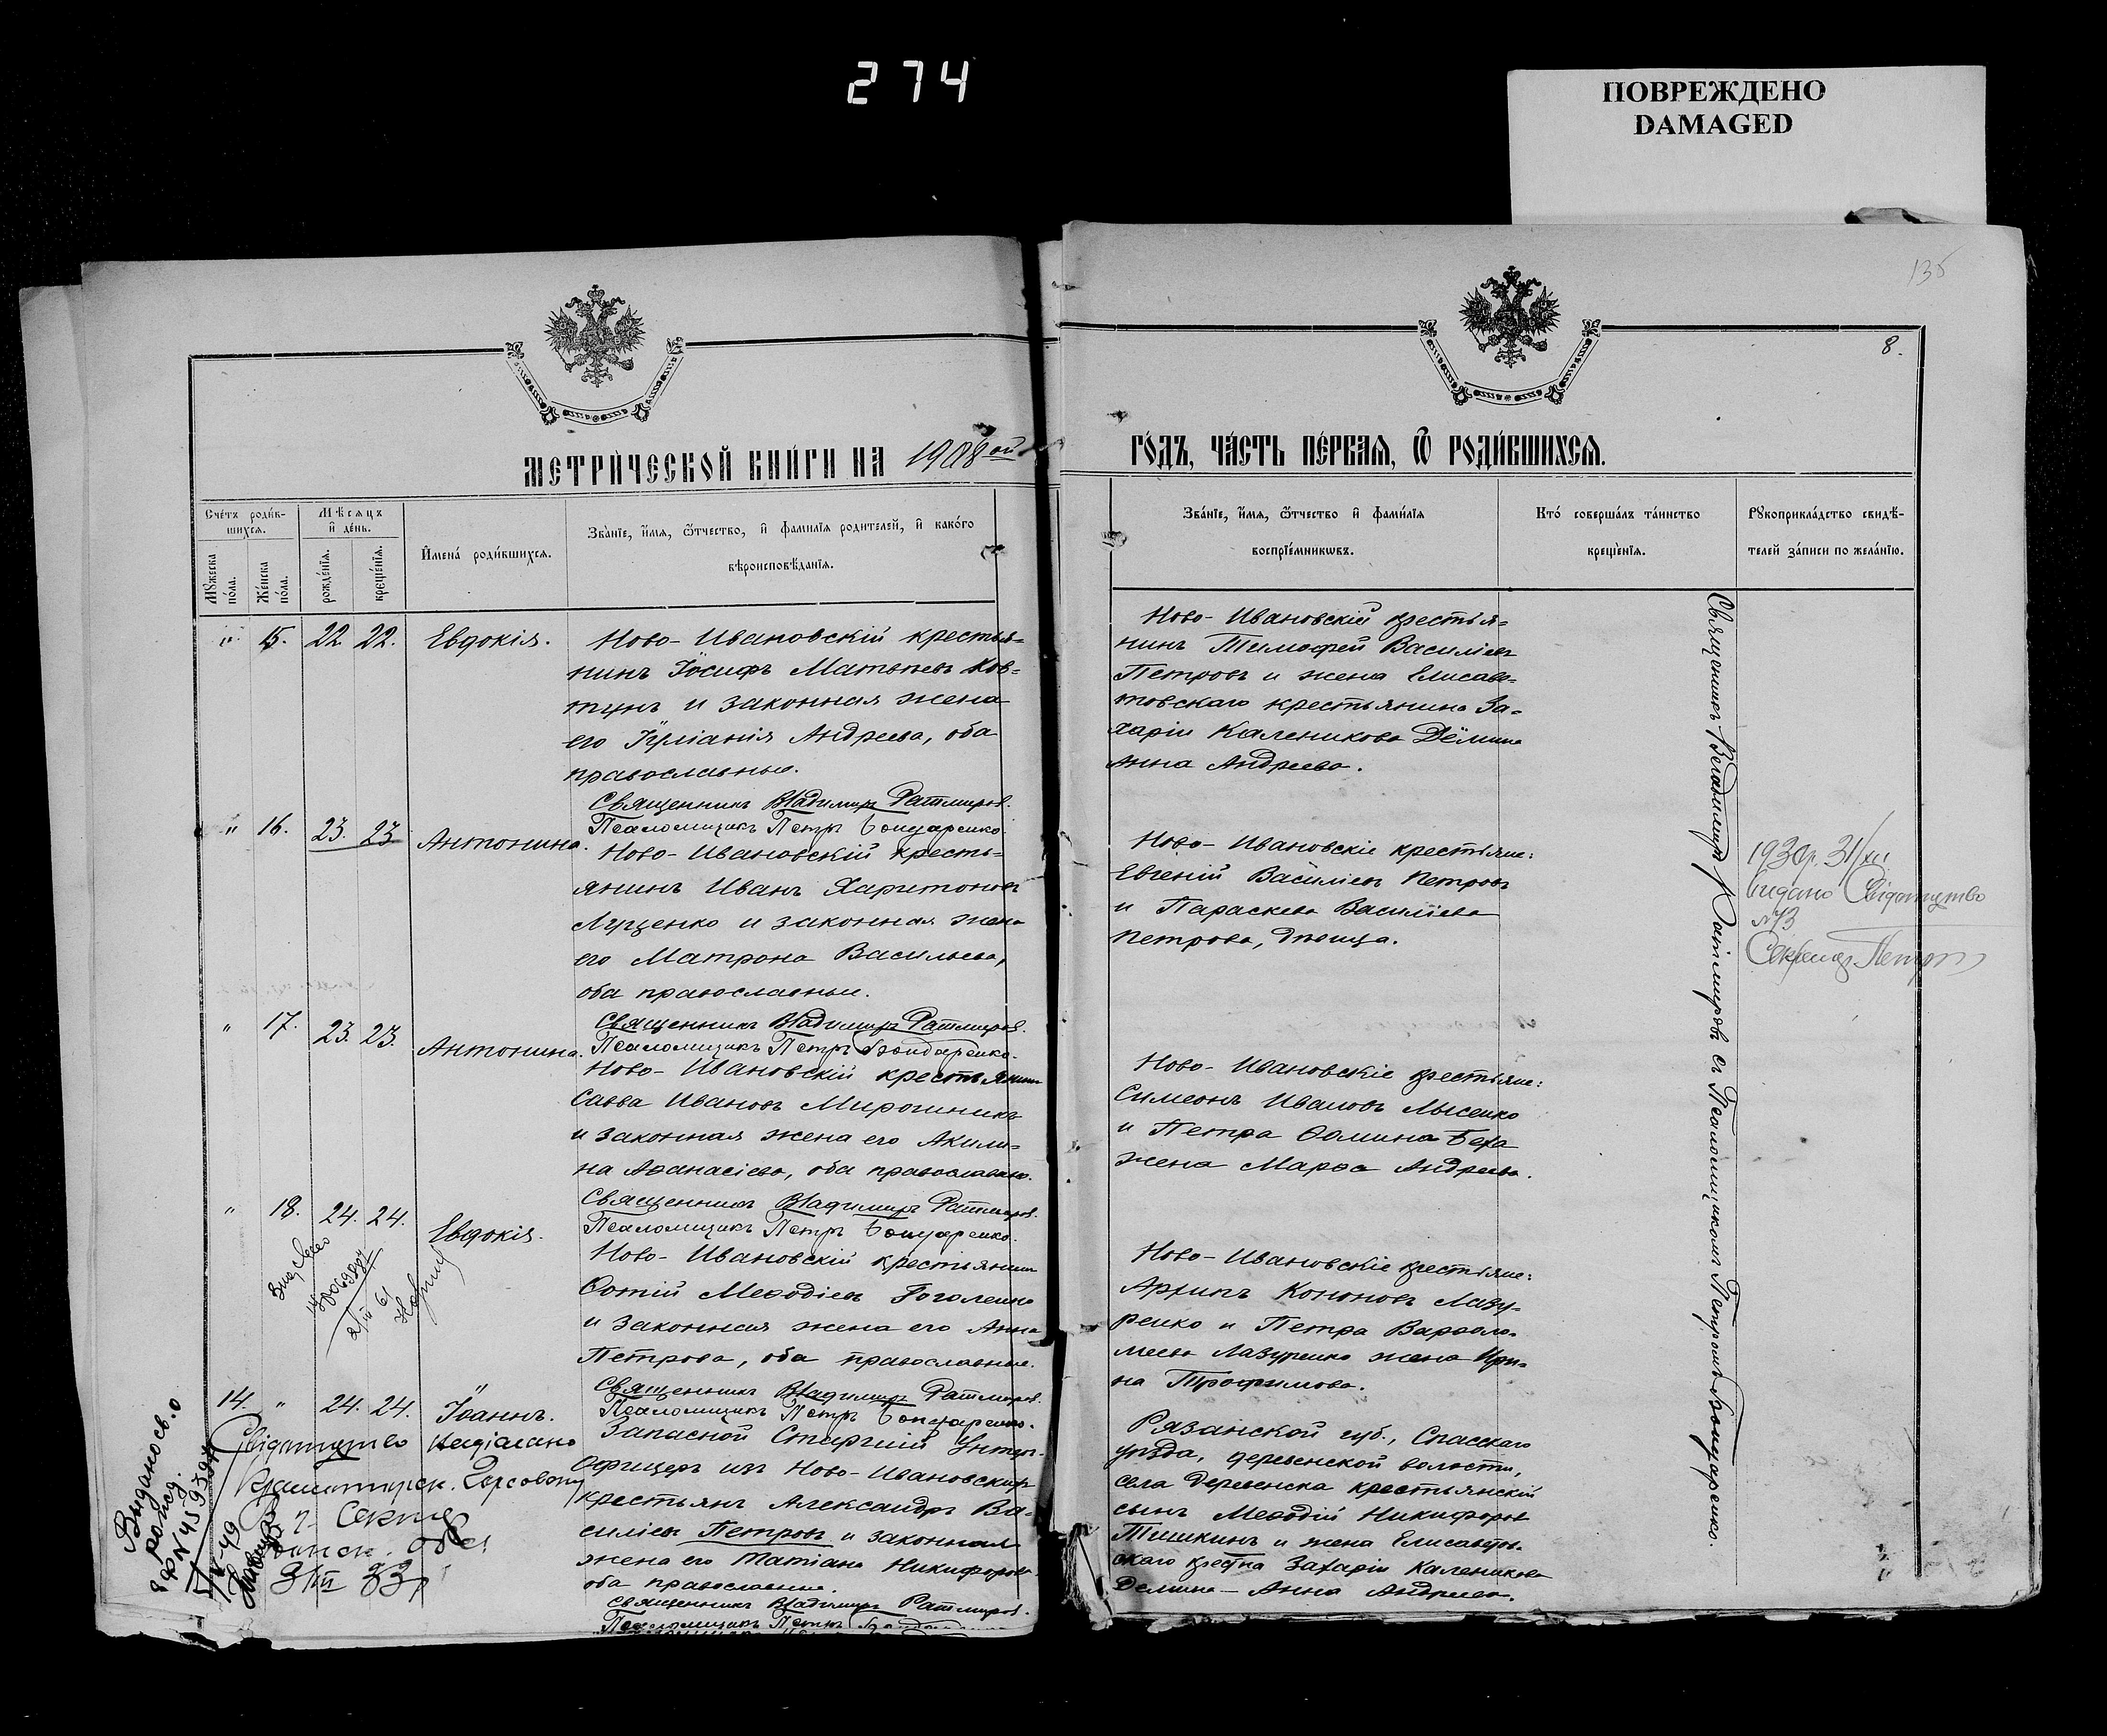 274
ПОВРЕЖДЕНО
DAMAGED
135
8.
МЕТРИ́ЧЕСКОЙ КНИ́ГИ НА 1908 ой
ГО́ДЪ, ЧА́СТЬ ПЕ́РВАЯ, Ѿ РОДИ́ВШИХСЯ.
Сче́тъ роди́в-
шихся.
Мѣ́сяцъ
и҆ де́нь.
Мꙋжеска по́ла.
Же́нска по́ла.
рожде́нїя.
креще́нїя.
И҆мена̀ роди́вшихся.
Зва́нїе, и҆́мя, ѻ҆́тчество, и҆ фами́лїя роди́телей, и҆ како́го
вѣроисповѣ́данїя.
Зва́нїе, и҆́мя, ѻ҆́тчество и҆ фами́лїя
воспрїе́мникѡвъ.
Кто̀ соверша́лъ та́инство
креще́нїя.
Рꙋкоприкла́дство свидѣ́-
телей за́писи по жела́нїю.
" 15. 22. 22. Евдокія.
Ново-Ивановскій крестья=
нинъ Іосифъ Матѳѣевъ Ков=
тунъ и законная жена
его Іуліанія Андреева, оба
православные.
Священникъ Владимиръ Ратмиров.
Псаломщикъ Петръ Бондаренко.
Ново-Ивановскій крестья=
нинъ Тимофей Василіевъ
Петровъ и жена Елисаве=
товскаго крестьянина За=
харіи Каленикова Дёмина
Анна Андреева.
" 16. 23. 23. Антонина.
Ново-Ивановскій кресть=
янинъ Иванъ Харитоновъ
Луценко и законная жена
его Матрона Васильева,
оба православные.
Священникъ Владимиръ Ратмиров.
Псаломщикъ Петръ Бондаренко.
Ново-Ивановскіе крестьяне:
Евгеній Василіевъ Петровъ
и Параскева Василіева
Петрова, дѣвица.
1930р. 31/XII
видано Свідоцтво
№73
Секретар Петров
" 17. 23. 23. Антонина.
Ново-Ивановскій крестьянинъ
Савва Ивановъ Мирошникъ
и законная жена его Акили=
на Аѳанасіева, оба православные.
Священникъ Владимиръ Ратмиров.
Псаломщикъ Петръ Бондаренко.
Ново-Ивановскіе крестьяне:
Симеонъ Ивановъ Лысенко
и Петра Ѳомина Беха
жена Марѳа Андреева.
" 18. 24. 24. Евдокія.
Ново-Ивановскій крестьянинъ
Фотій Меѳодіевъ Гоголенко
и законная жена его Анна
Петрова, оба православные.
Священникъ Владимиръ Ратмиров.
Псаломщикъ Петръ Бондаренко.
Ново-Ивановскіе крестьяне:
Архипъ Кононовъ Лазу=
ренко и Петра Варѳоло=
меева Лазуренко жена Ири=
на Трофимова.
14. " 24. 24. Іоаннъ.
Запасной Старшій Унтеръ-
Офицеръ изъ Ново-Ивановскихъ
крестьянъ Александръ Ва=
силіевъ Петровъ и законная
жена его Татіана Никифорова
оба православные.
Священникъ Владимиръ Ратмиров.
Псаломщикъ Петръ Бондаренко
Рязанской губ., Спасскаго
уѣзда, деревенской волости,
села Деревенска крестьянскій
сынъ Меѳодій Никифоровъ
Тишкинъ и жена Елисаветов=
скаго крест-на Захаріи Каленикова
Демина - Анна Андреева.
Священникъ Владимиръ Ратмировъ съ Псаломщикомъ Петромъ Бондаренко.
Свідоцтво надіслано
3/III 33р
Видано св. о
рожд.